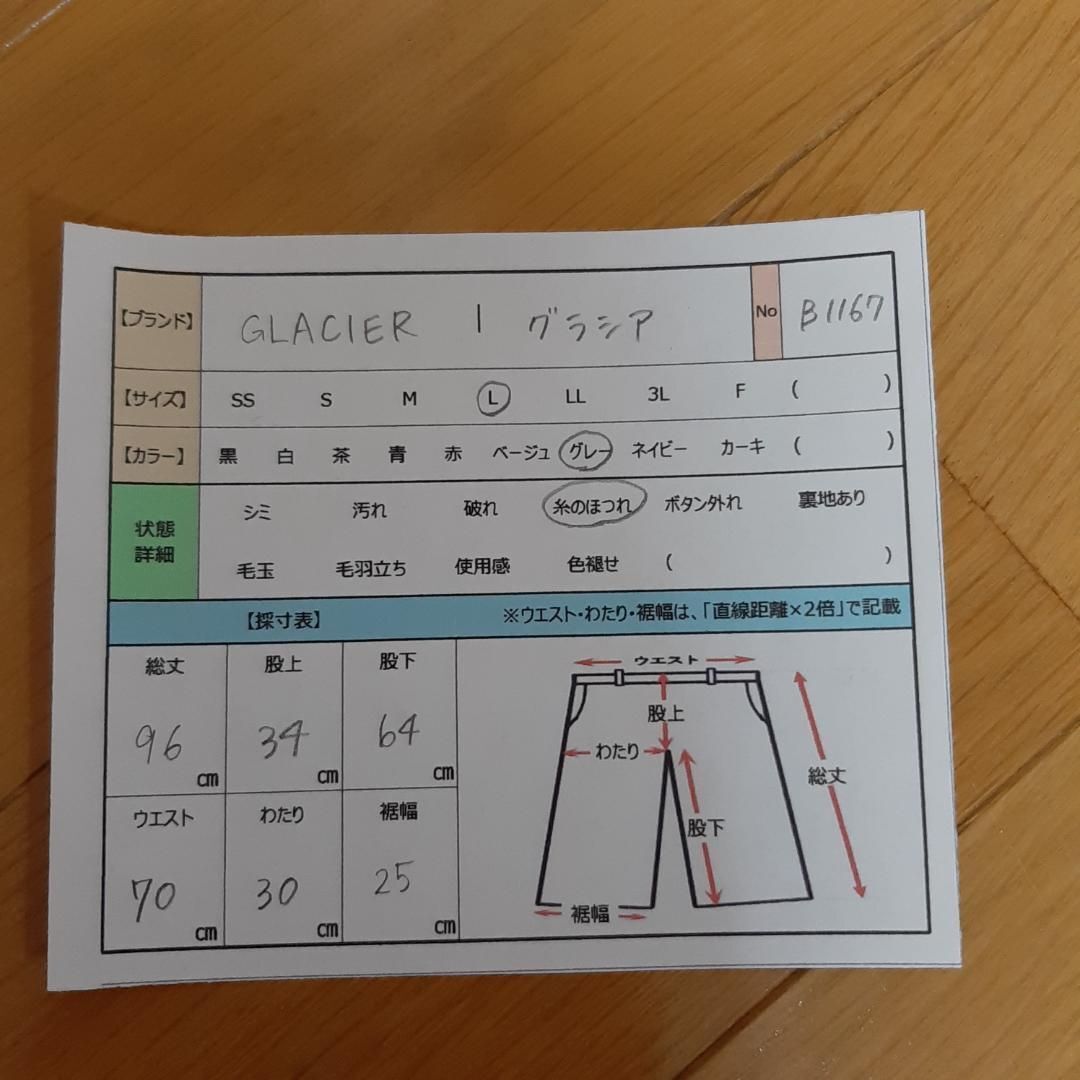 【ブランド】 GLACIER | グラシア No B1167
【サイズ】 SS S M L LL 3L F ( )
【カラー】 黒 白 茶 青 赤 ベージュ グレー ネイビー カーキ ( )
状態
詳細
シミ 汚れ 破れ 糸のほつれ ボタン外れ 裏地あり
毛玉 毛羽立ち 使用感 色褪せ ( )
【採寸表】 ※ウエスト・わたり・裾幅は、「直線距離×2倍」で記載
総丈 股上 股下
96 cm 34 cm 64 cm
ウエスト わたり 裾幅
70 cm 30 cm 25 cm
ウエスト
股上
わたり
総丈
股下
裾幅